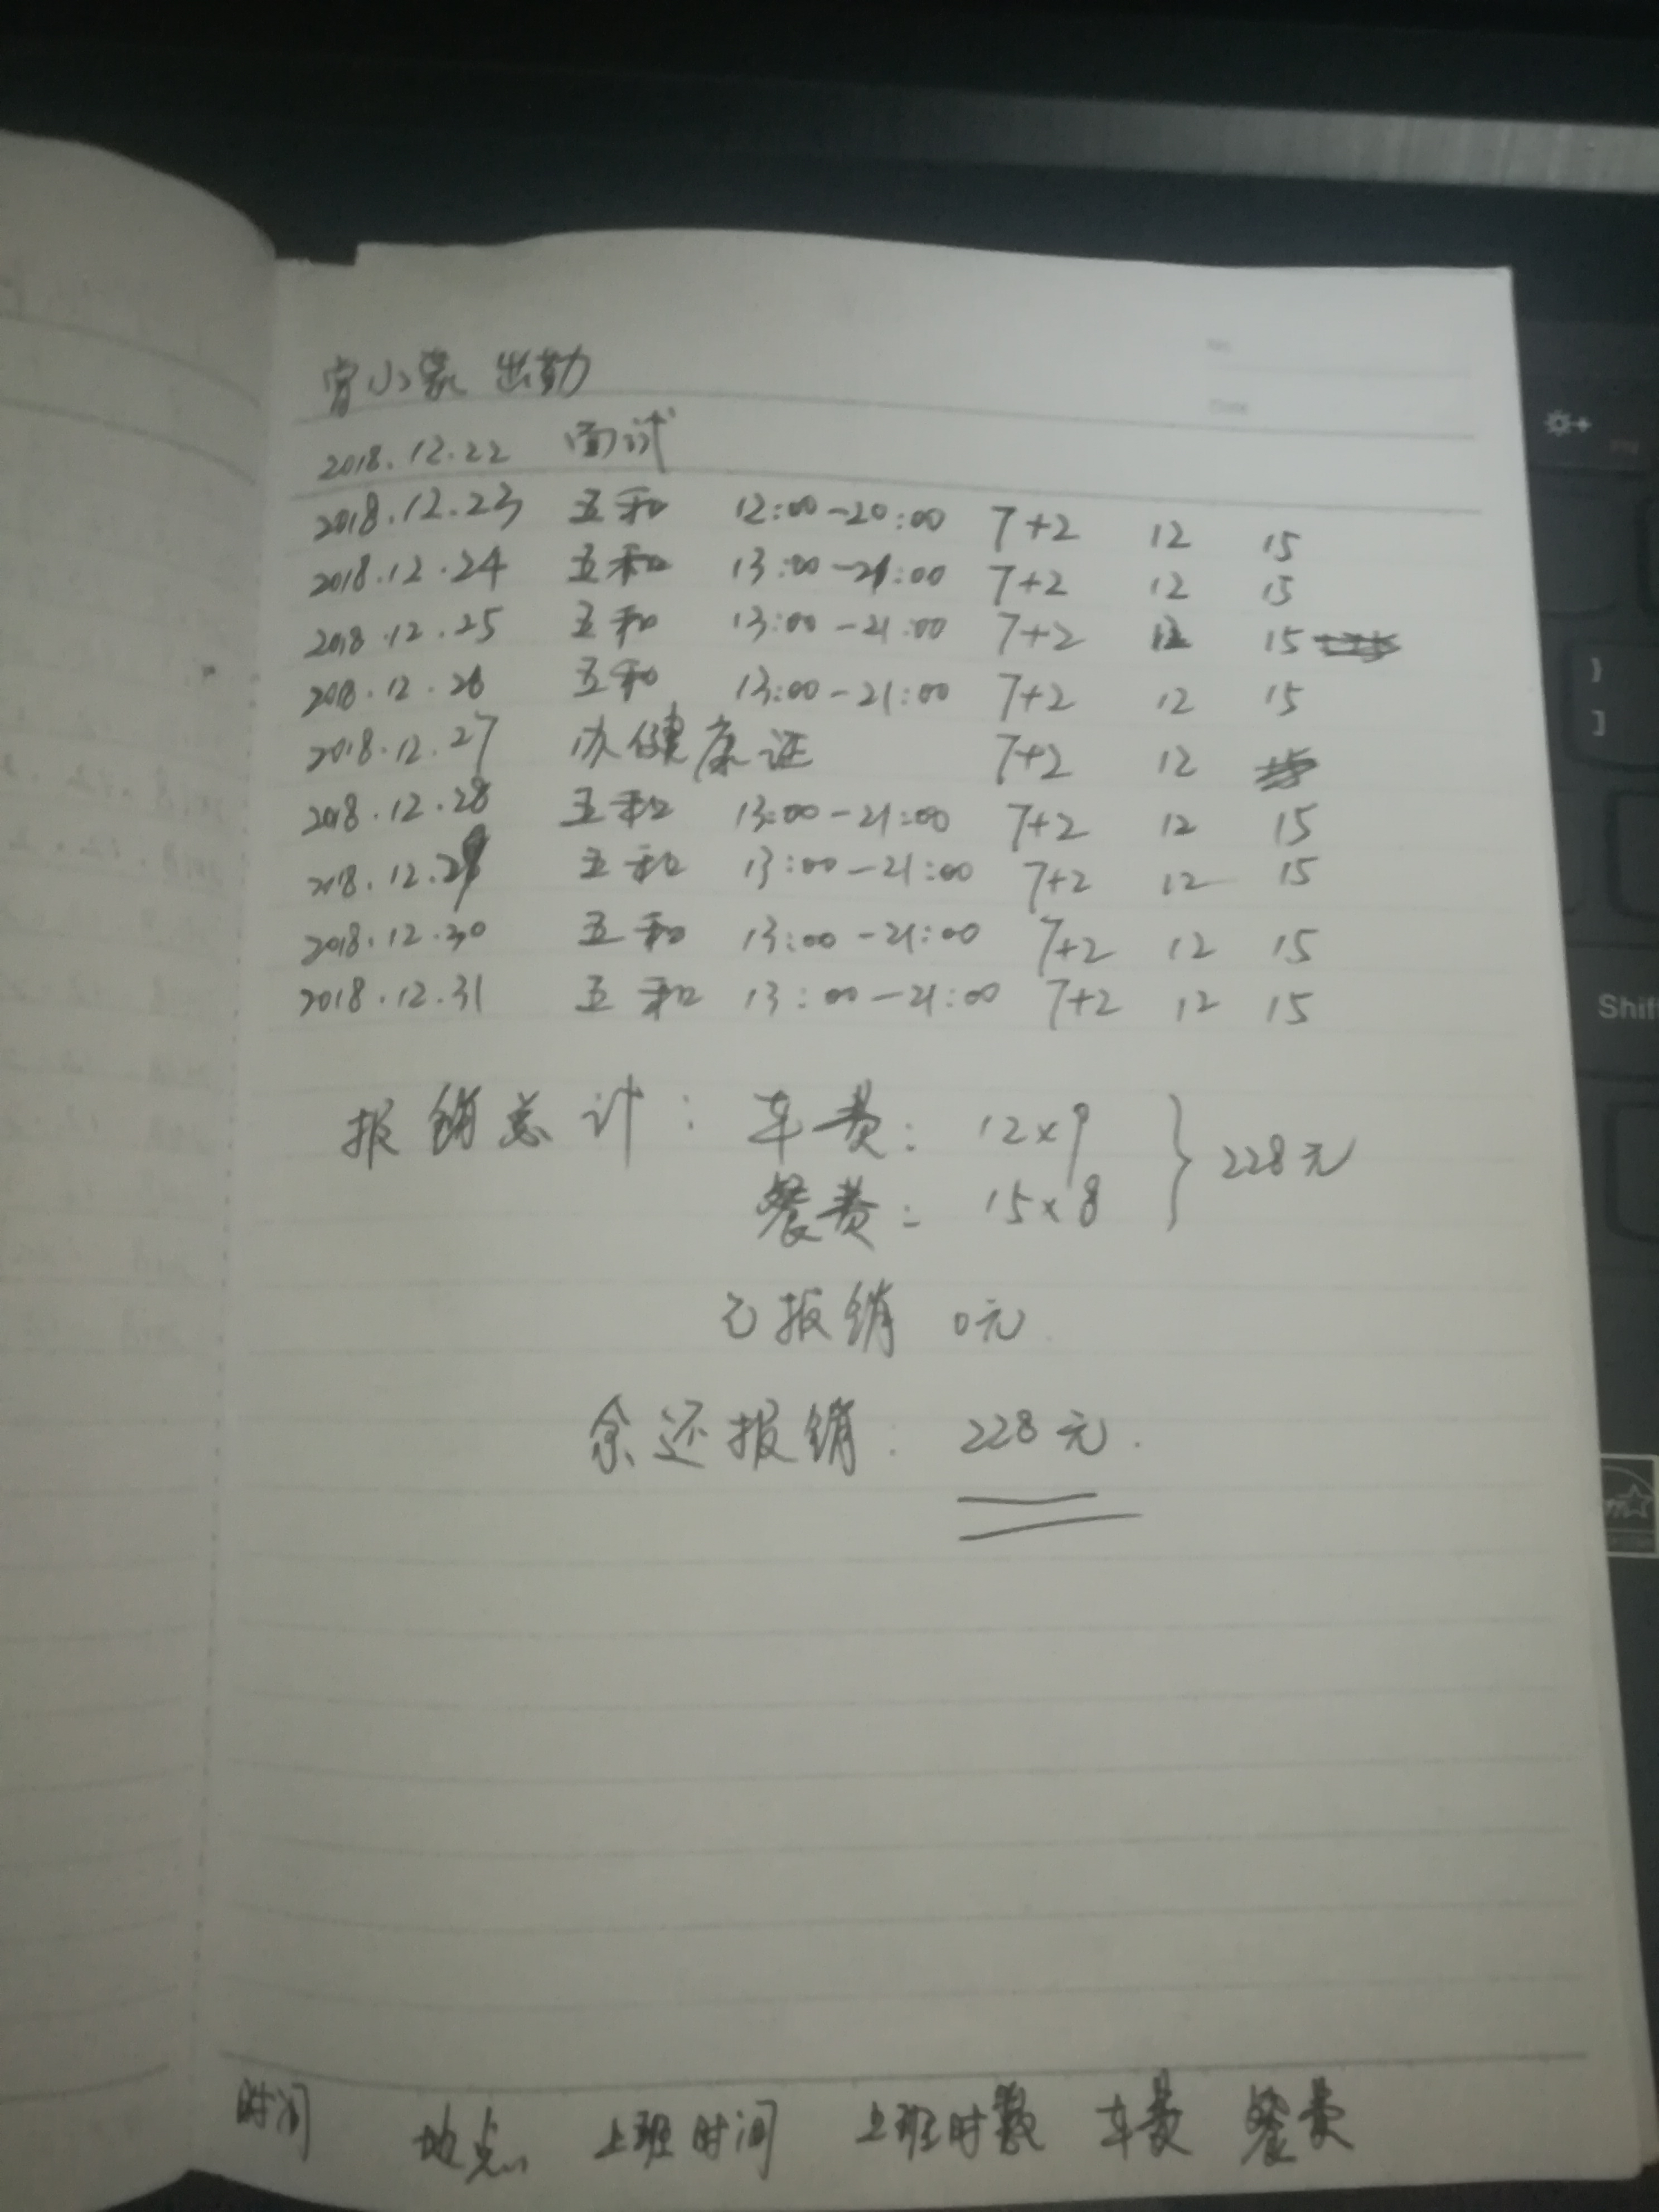 曾小蒙 出勤
2018.12.22 面试
2018.12.23 五和 12:00-20:00 7+2 12 15
2018.12.24 五和 13:00-21:00 7+2 12 15
2018.12.25 五和 13:00-21:00 7+2 12 15
2018.12.26 五和 13:00-21:00 7+2 12 15
2018.12.27 办健康证 7+2 12
2018.12.28 五和 13:00-21:00 7+2 12 15
2018.12.29 五和 13:00-21:00 7+2 12 15
2018.12.30 五和 13:00-21:00 7+2 12 15
2018.12.31 五和 13:00-21:00 7+2 12 15
报销总计: 车费: 12×9
餐费: 15×8 } 228元
已报销 0元
余还报销: 228元.
时间 地点 上班时间 上班时数 车费 餐费
Shif